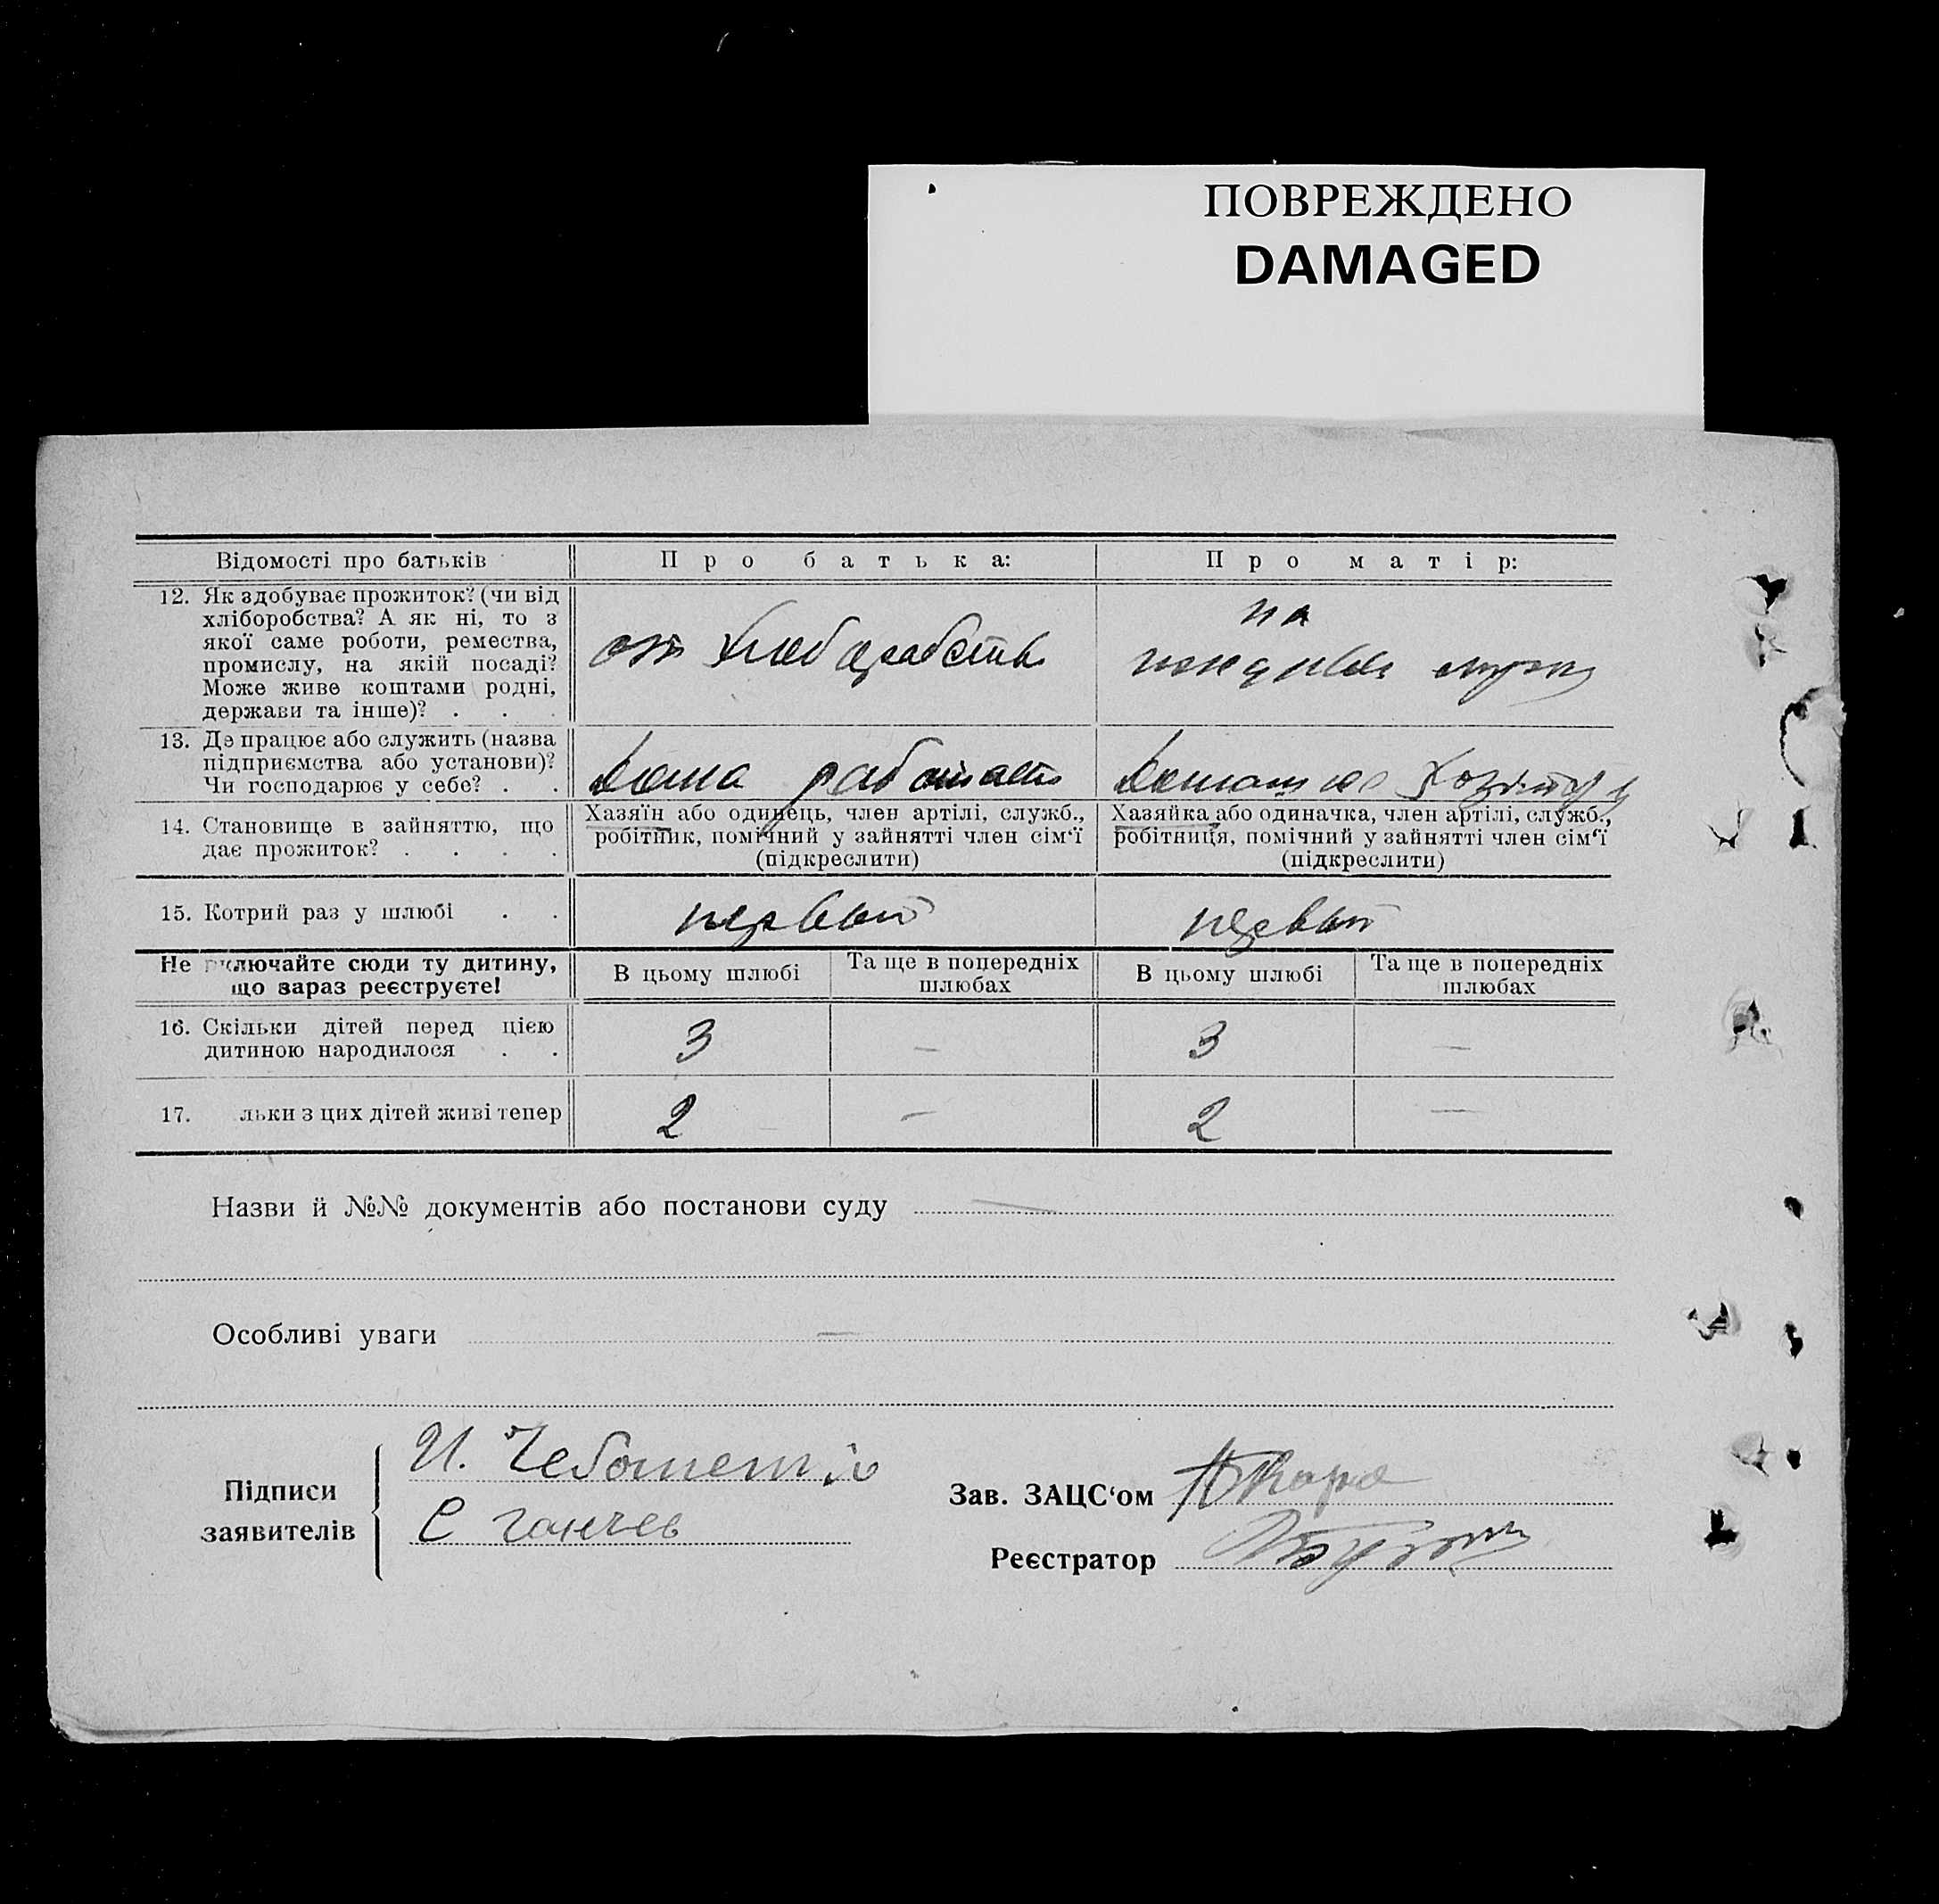 ПОВРЕЖДЕНО
DAMAGED
Відомості про батьків
Про батька:
Про матір:
12. Як здобуває прожиток? (чи від
хліборобства? А як ні, то з
якої саме роботи, ремества,
промислу, на якій посаді?
Може живе коштами родні,
держави та інше)? . . .
от хлебоработв
на
мужа
13. Де працює або служить (назва
підприємства або установи)?
Чи господарює у себе? . .
дома работает
14. Становище в зайняттю, що
дає прожиток? . . . .
Хазяїн або одинець, член артілі, служб.,
робітник, помічний у зайнятті член сім‘ї
(підкреслити)
Хазяйка або одиначка, член артілі, служб.,
робітниця, помічний у зайнятті член сім‘ї
(підкреслити)
15. Котрий раз у шлюбі . .
первый
первый
Не включайте сюди ту дитину,
що зараз реєструєте!
В цьому шлюбі
Та ще в попередніх
шлюбах
В цьому шлюбі
Та ще в попередніх
шлюбах
16. Скільки дітей перед цією
дитиною народилося . .
3 — 3 —
17. льки з цих дітей живі тепер
2 — 2 —
Назви й №№ документів або постанови суду —
Особливі уваги —
Підписи
заявителів
И.
С Ганчев
Зав. ЗАЦС‘ом
Реєстратор